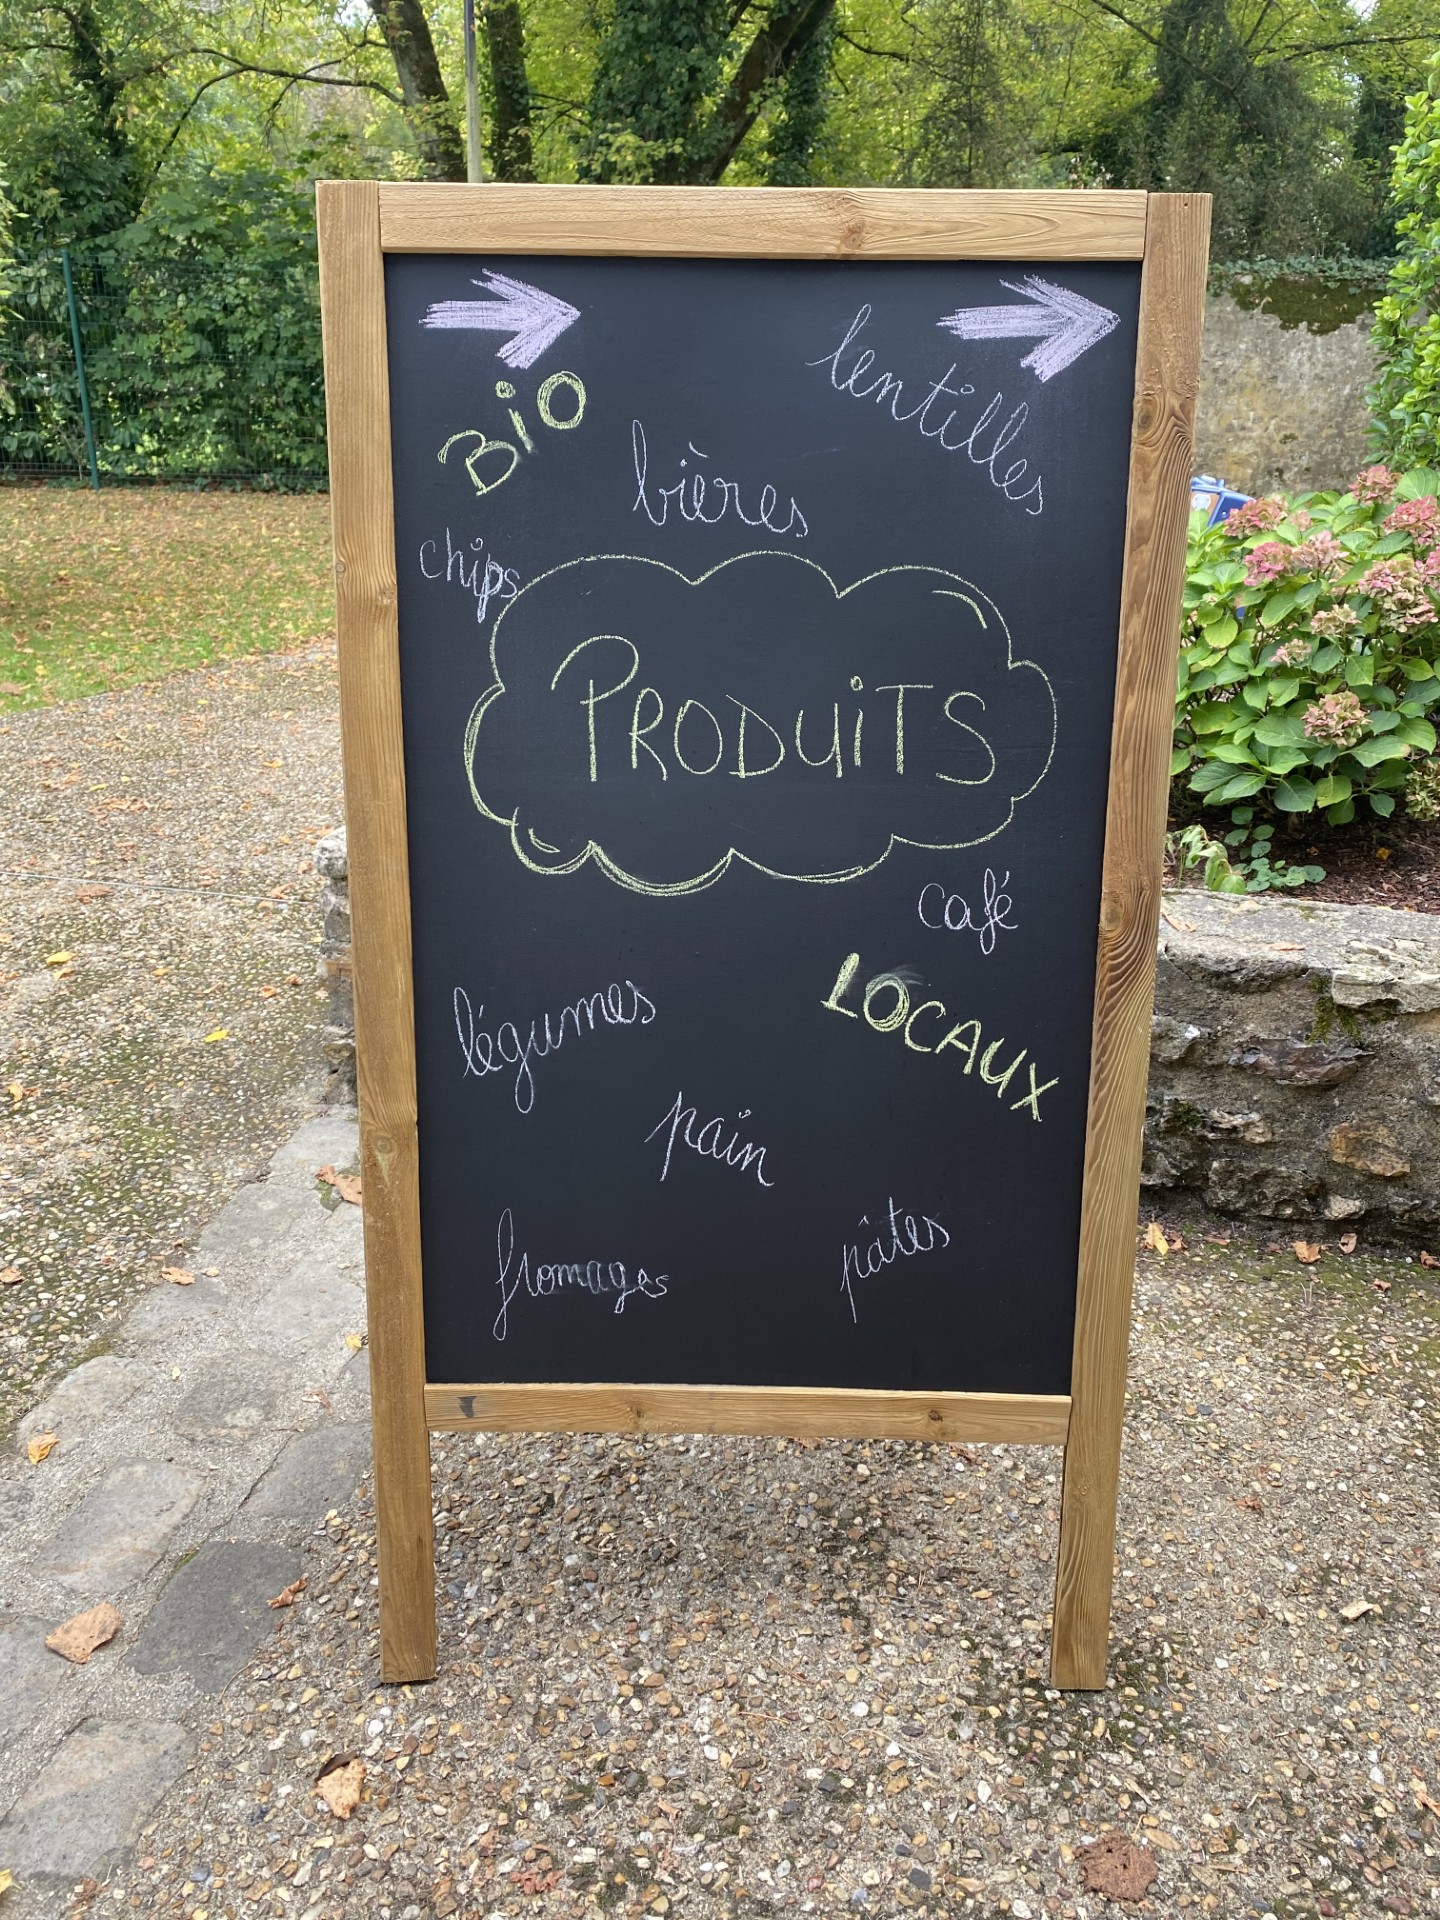 BiO
lentilles
bières
chips
PRODUiTS
café
LOCAUX
légumes
pain
pâtes
fromages